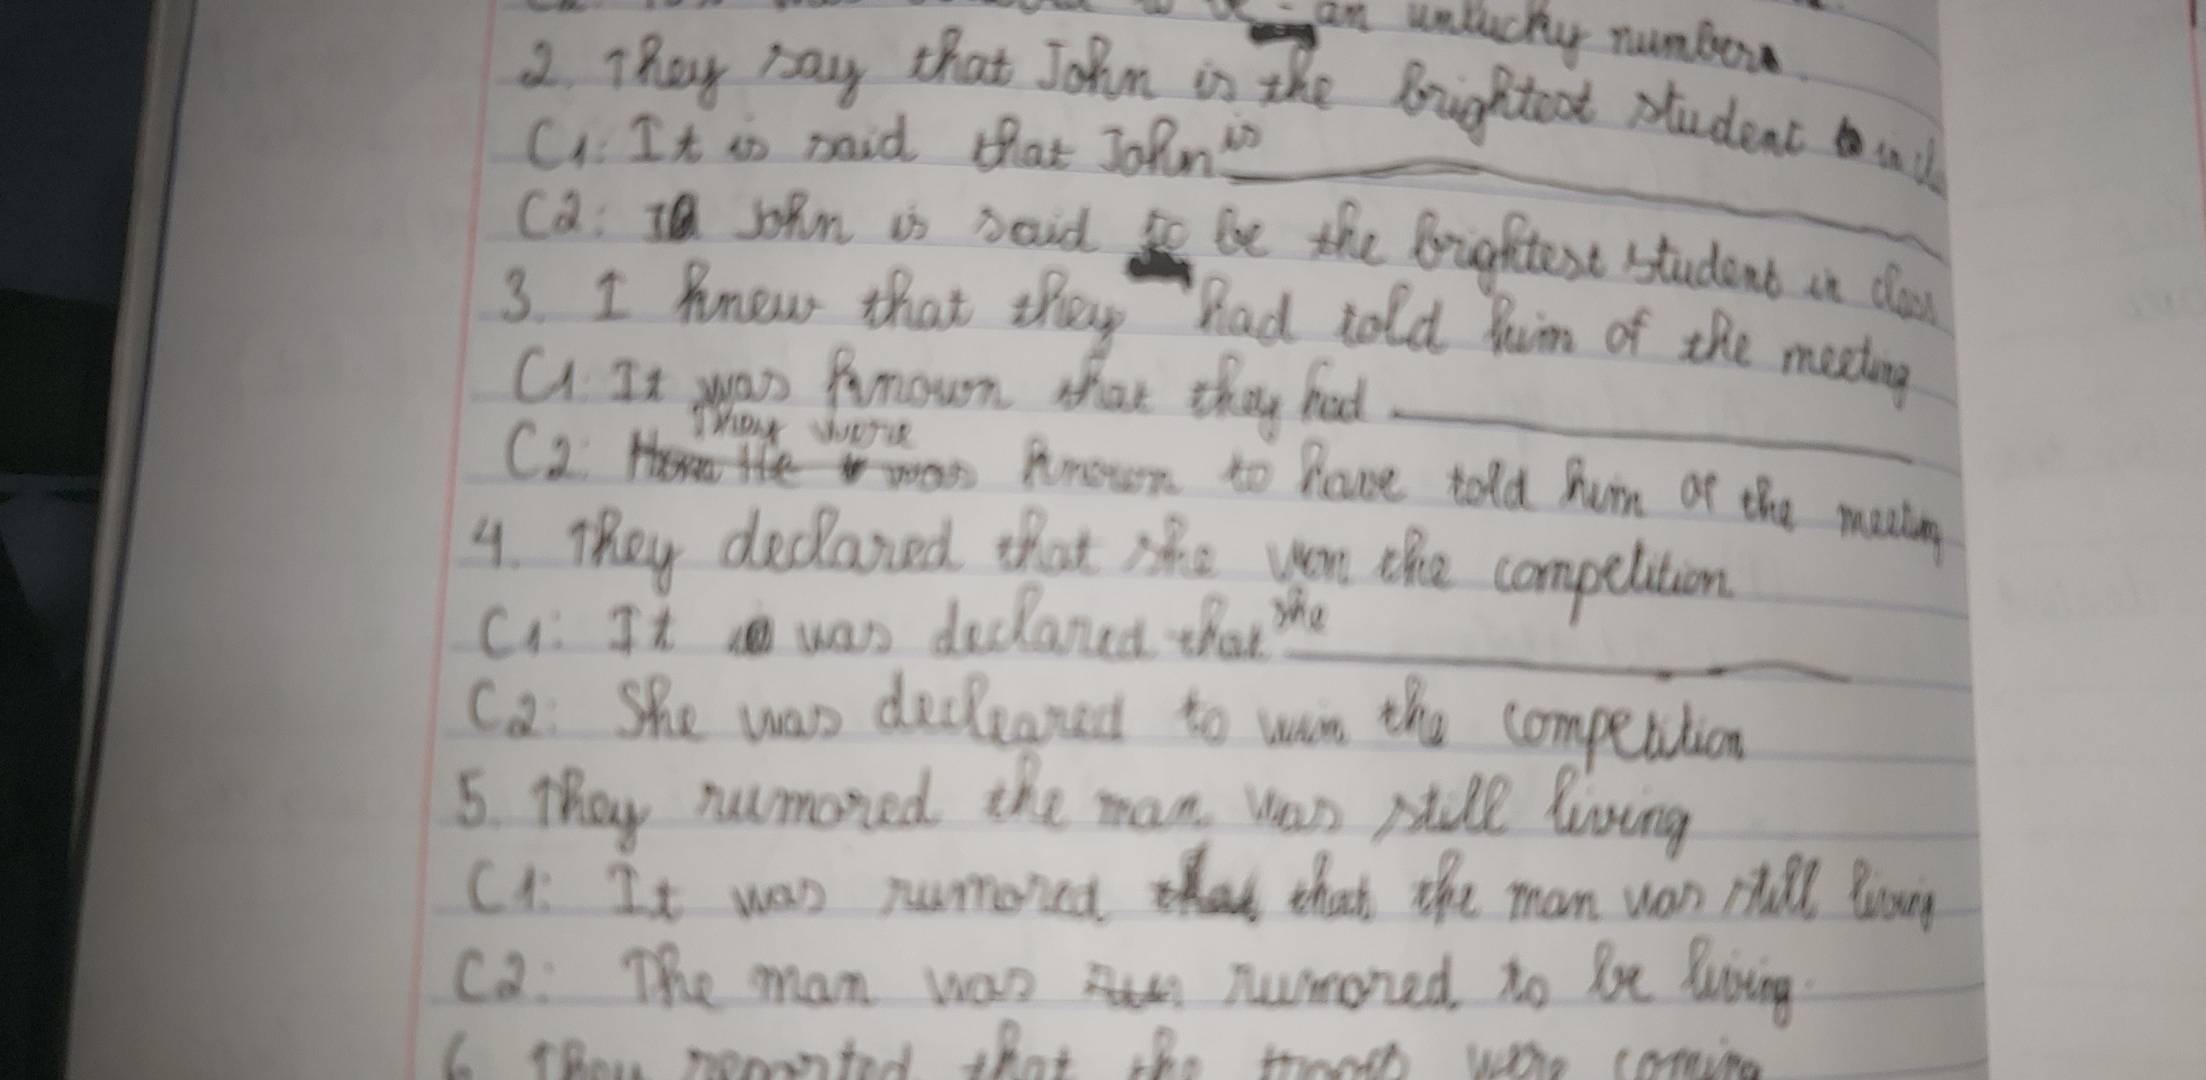 an unlucky number
2. They say that John is the brightest student in
C1: It is said that John is
C2: John is said to be the brightest student in class
3. I knew that they had told him of the meeting
C1: It was known that they had
They were
C2: He was known to have told him of the meeting
4. They declared that she won the competition
C1: It was declared that she
C2: She was decleared to win the competition
5. They rumored the man was still living
C1: It was rumored that that the man was still living
C2: The man was rumored to be living.
6. They reported that the troops were coming